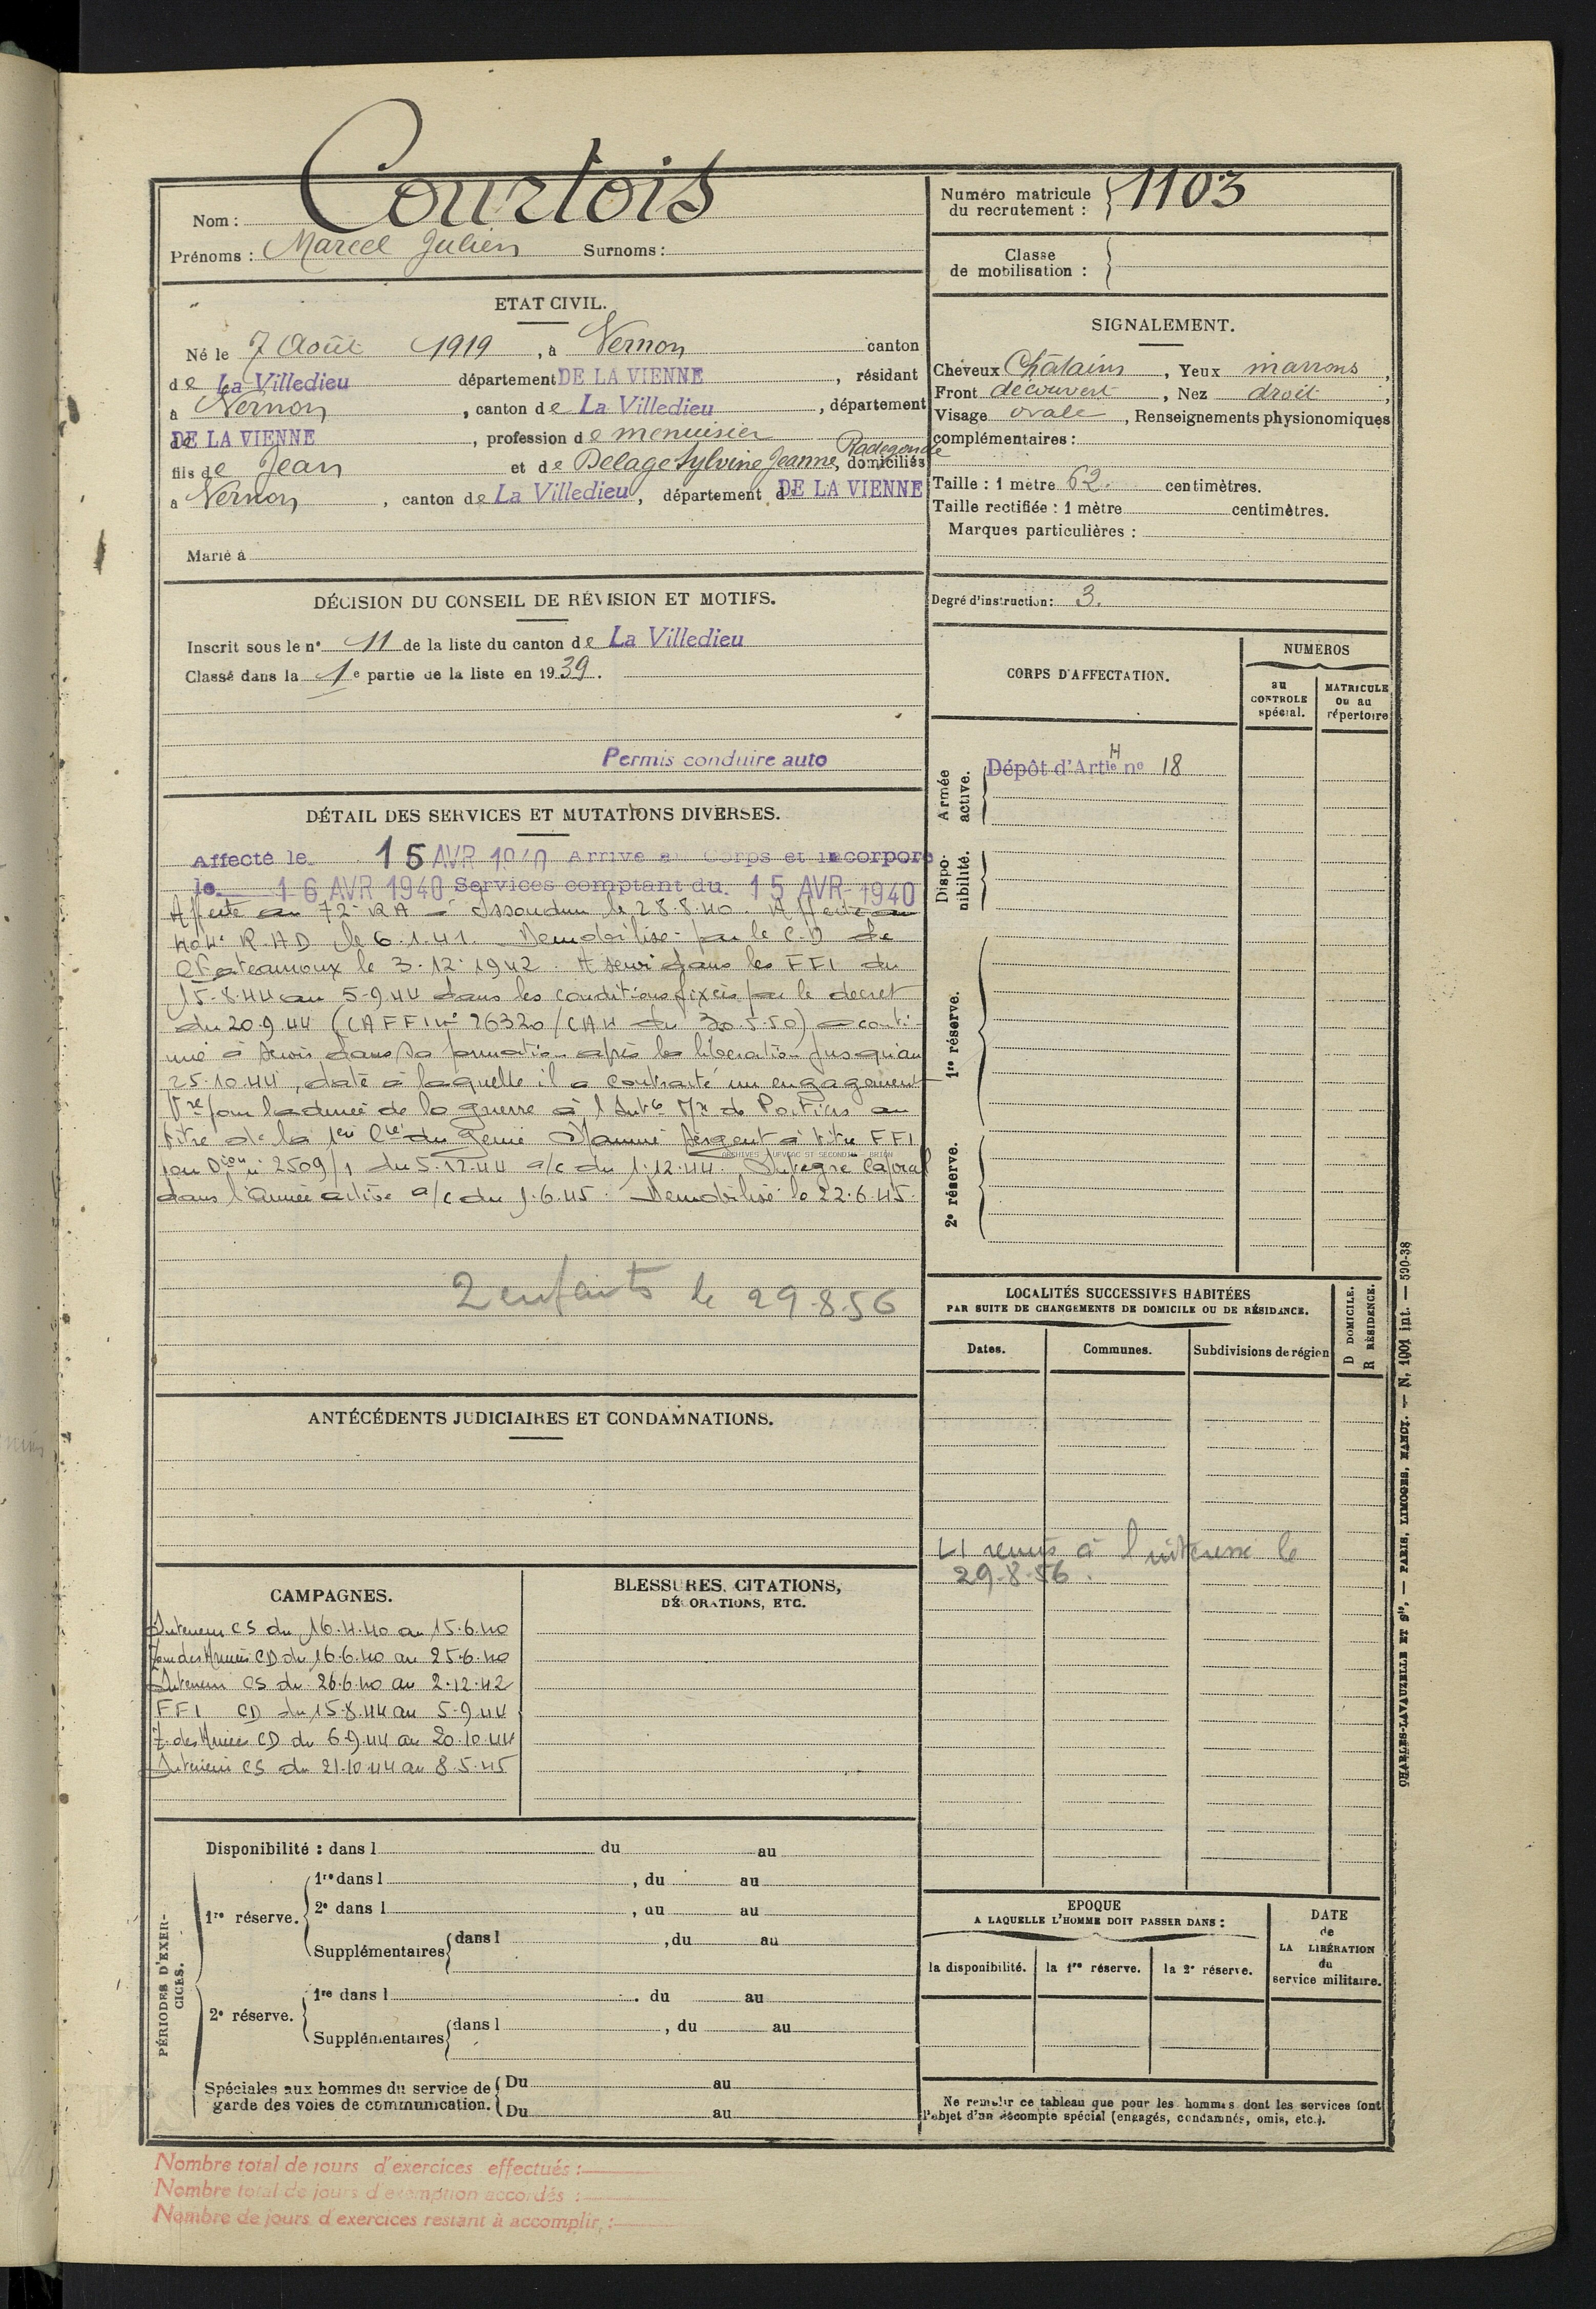 Nom : Courtois
Prénoms : Marcel Julien Surnoms :
Numéro matricule
du recrutement : 1103
Classe
de mobilisation :
ETAT CIVIL.
Né le 7 Août 1919, à Vernon canton
de La Villedieu département DE LA VIENNE, résidant
à Vernon, canton de La Villedieu, département
DE LA VIENNE, profession de menuisier
fils de Jean et de Delage Sylvine Jeanne Radegonde, domiciliés
à Vernon, canton de La Villedieu, département d DE LA VIENNE
Marié à
SIGNALEMENT.
Cheveux Châtains, Yeux marrons,
Front découvert, Nez droit,
Visage ovale, Renseignements physionomiques
complémentaires :
Taille : 1 mètre 62. centimètres.
Taille rectifiée : 1 mètre centimètres.
Marques particulières :
Degré d'instruction : 3.
DÉCISION DU CONSEIL DE RÉVISION ET MOTIFS.
Inscrit sous le n° 11 de la liste du canton de La Villedieu
Classé dans la 1e partie de la liste en 1939.
Permis conduire auto
CORPS D'AFFECTATION.
NUMEROS
au
CONTROLE
spécial.
MATRICULE
ou au
répertoire
Armée
active.
Dépôt d'Artie H no 18
Dispo-
nibilité.
1re réserve.
2e réserve.
DÉTAIL DES SERVICES ET MUTATIONS DIVERSES.
Affecté le 15 AVR 1940 Arrivé au Corps et incorporé
le 16 AVR 1940 Services comptant du 15 AVR 1940
Affecté au 72e RA à Issoudun le 28.8.40. Affecté au
404e R.AD le 6.1.41. Démobilisé par le C.D de
Chateauroux le 3.12.1942. A servi dans les FFI du
15-8-44 au 5-9-44 dans les conditions fixées par le décret
du 20.9.44 (CAFFI n° 26320/CAH du 30.5.50) a conti-
nué à servir dans sa formation après la libération jusqu'au
25.10.44, date à laquelle il a contracté un engagement
Vre pour la durée de la guerre à l'Int Mre de Poitiers au
titre de la 1ere Cie du Génie Nommé Sergent à titre FFI
par Dion n° 2509/1 du 5.12.44 a/c du 1.12.44. Intégré Caporal
dans l'armée active a/c du 1.6.45. Démobilisé le 22.6.45.
ARCHIVES
2 enfants le 29.8.56
LOCALITÉS SUCCESSIVES HABITÉES
PAR SUITE DE CHANGEMENTS DE DOMICILE OU DE RÉSIDANCE.
Dates.
Communes.
Subdivisions de région
D DOMICILE.
R RÉSIDENCE.
LI remis à l'intéressé le
29.8.56.
ANTÉCÉDENTS JUDICIAIRES ET CONDAMNATIONS.
CAMPAGNES.
Intérieur CS du 16.4.40 au 15.6.40
Zone des Armées CD du 16.6.40 au 25.6.40
Intérieur CS du 26.6.40 au 2.12.42
FFI CD du 15.8.44 au 5-9.44
Z. des Armées CD du 6.9.44 au 20.10.44
Intérieur CS du 21.10.44 au 8.5.45
BLESSURES, CITATIONS,
DÉCORATIONS, ETC.
PÉRIODES D'EXER-
CICES.
Disponibilité : dans l du au
1re réserve.
1re dans l, du au
2e dans l, du au
Supplémentaires dans l, du au
2e réserve.
1re dans l. du au
Supplémentaires dans l, du au
Spéciales aux hommes du service de
garde des voies de communication.
Du au
Du au
EPOQUE
A LAQUELLE L'HOMME DOIT PASSER DANS :
la disponibilité.
la 1re réserve.
la 2e réserve.
DATE
de
LA LIBÉRATION
du
service militaire.
Ne remplir ce tableau que pour les hommes dont les services font
l'objet d'un décompte spécial (engagés, condamnés, omis, etc.).
Nombre total de jours d'exercices effectués :
Nombre total de jours d'exemption accordés :
Nombre de jours d'exercices restant à accomplir :
CHARLES-LAVAUZELLE ET Cie, — PARIS, LIMOGES, NANCY. — N. 1001 int. — 590-38